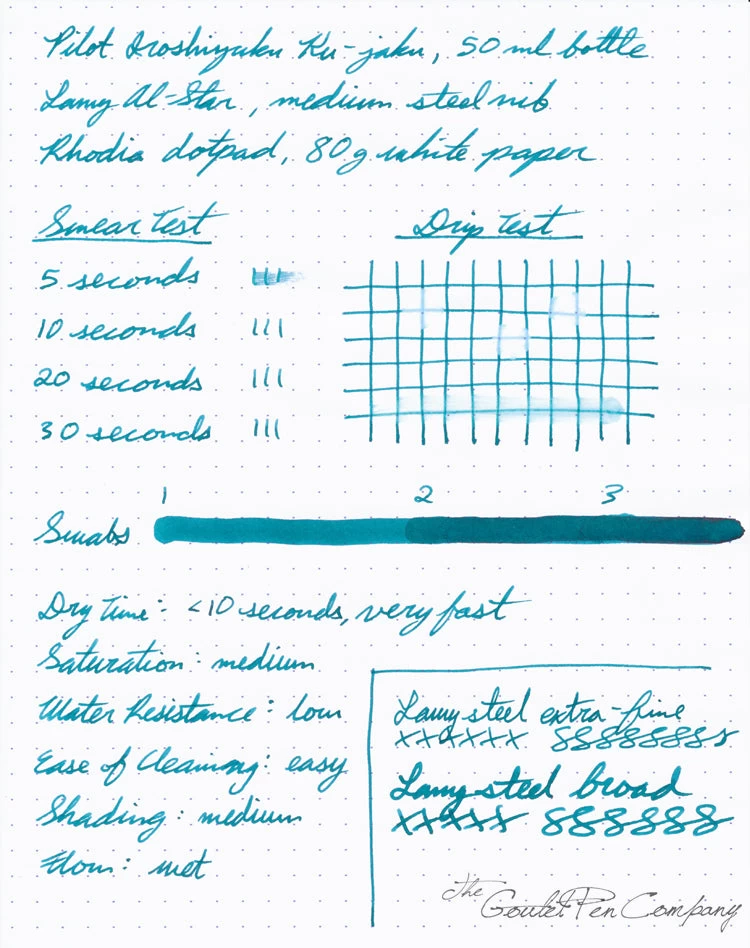 Pilot Iroshizuku Ku-jaku, 50 ml bottle
Lamy Al-Star, medium steel nib
Rhodia dotpad, 80g white paper
Smear Test
5 seconds
10 seconds
20 seconds
30 seconds
Drip Test
1 2 3
Swabs
Dry Time: <10 seconds, very fast
Saturation: medium
Water Resistance: low
Ease of Cleaning: easy
Shading: medium
Flow: wet
Lamy steel extra-fine
xxxxxx 88888888
Lamy steel broad
xxxxx 888888
The Goulet Pen Company